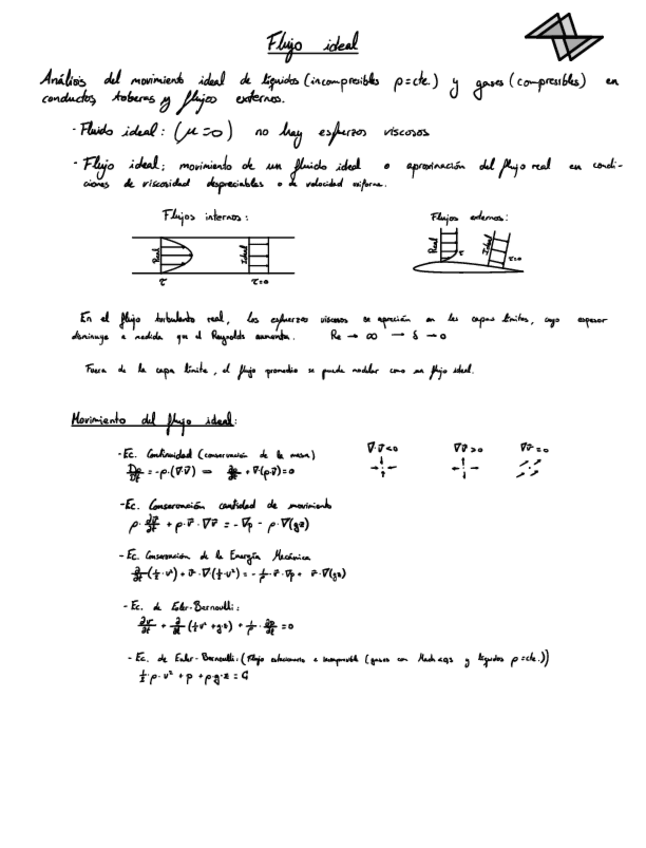 Flujo ideal
Análisis del movimiento ideal de líquidos (incompresibles ρ=cte.) y gases (compresibles) en
conductos, toberas y flujos externos.
· Fluido ideal: (μ=0) no hay esfuerzos viscosos
· Flujo ideal: movimiento de un fluido ideal o aproximación del flujo real en condi-
ciones de viscosidad despreciables o de velocidad uniforme.
Flujos internos: Flujos externos:
Real Ideal Real Ideal
τ τ=0 τ τ=0
En el flujo turbulento real, los esfuerzos viscosos se aprecian en las capas límites, cuyo espesor
disminuye a medida que el Reynolds aumenta. Re → ∞ → δ → 0
Fuera de la capa límite, el flujo promedio se puede modelar como un flujo ideal.
Movimiento del flujo ideal:
- Ec. Continuidad (conservación de la masa) ∇·v⃗<0 ∇v⃗>0 ∇v⃗=0
Dρ/Dt = -ρ·(∇·v⃗) ⇒ ∂ρ/∂t + ∇(ρ·v⃗)=0
- Ec. Conservación cantidad de movimiento
ρ·∂v⃗/∂t + ρ·v⃗·∇v⃗ = -∇p - ρ·∇(gz)
- Ec. Conservación de la Energía Mecánica
∂/∂t(½·v²) + v⃗·∇(½·v²) = -1/ρ·v⃗·∇p + v⃗·∇(gz)
- Ec. de Euler-Bernoulli:
- Ec. de Euler-Bernoulli: (Flujo estacionario e incompresible (gases con Mach<0,3 y líquidos ρ=cte.))
½·ρ·v² + p + ρ·g·z = C